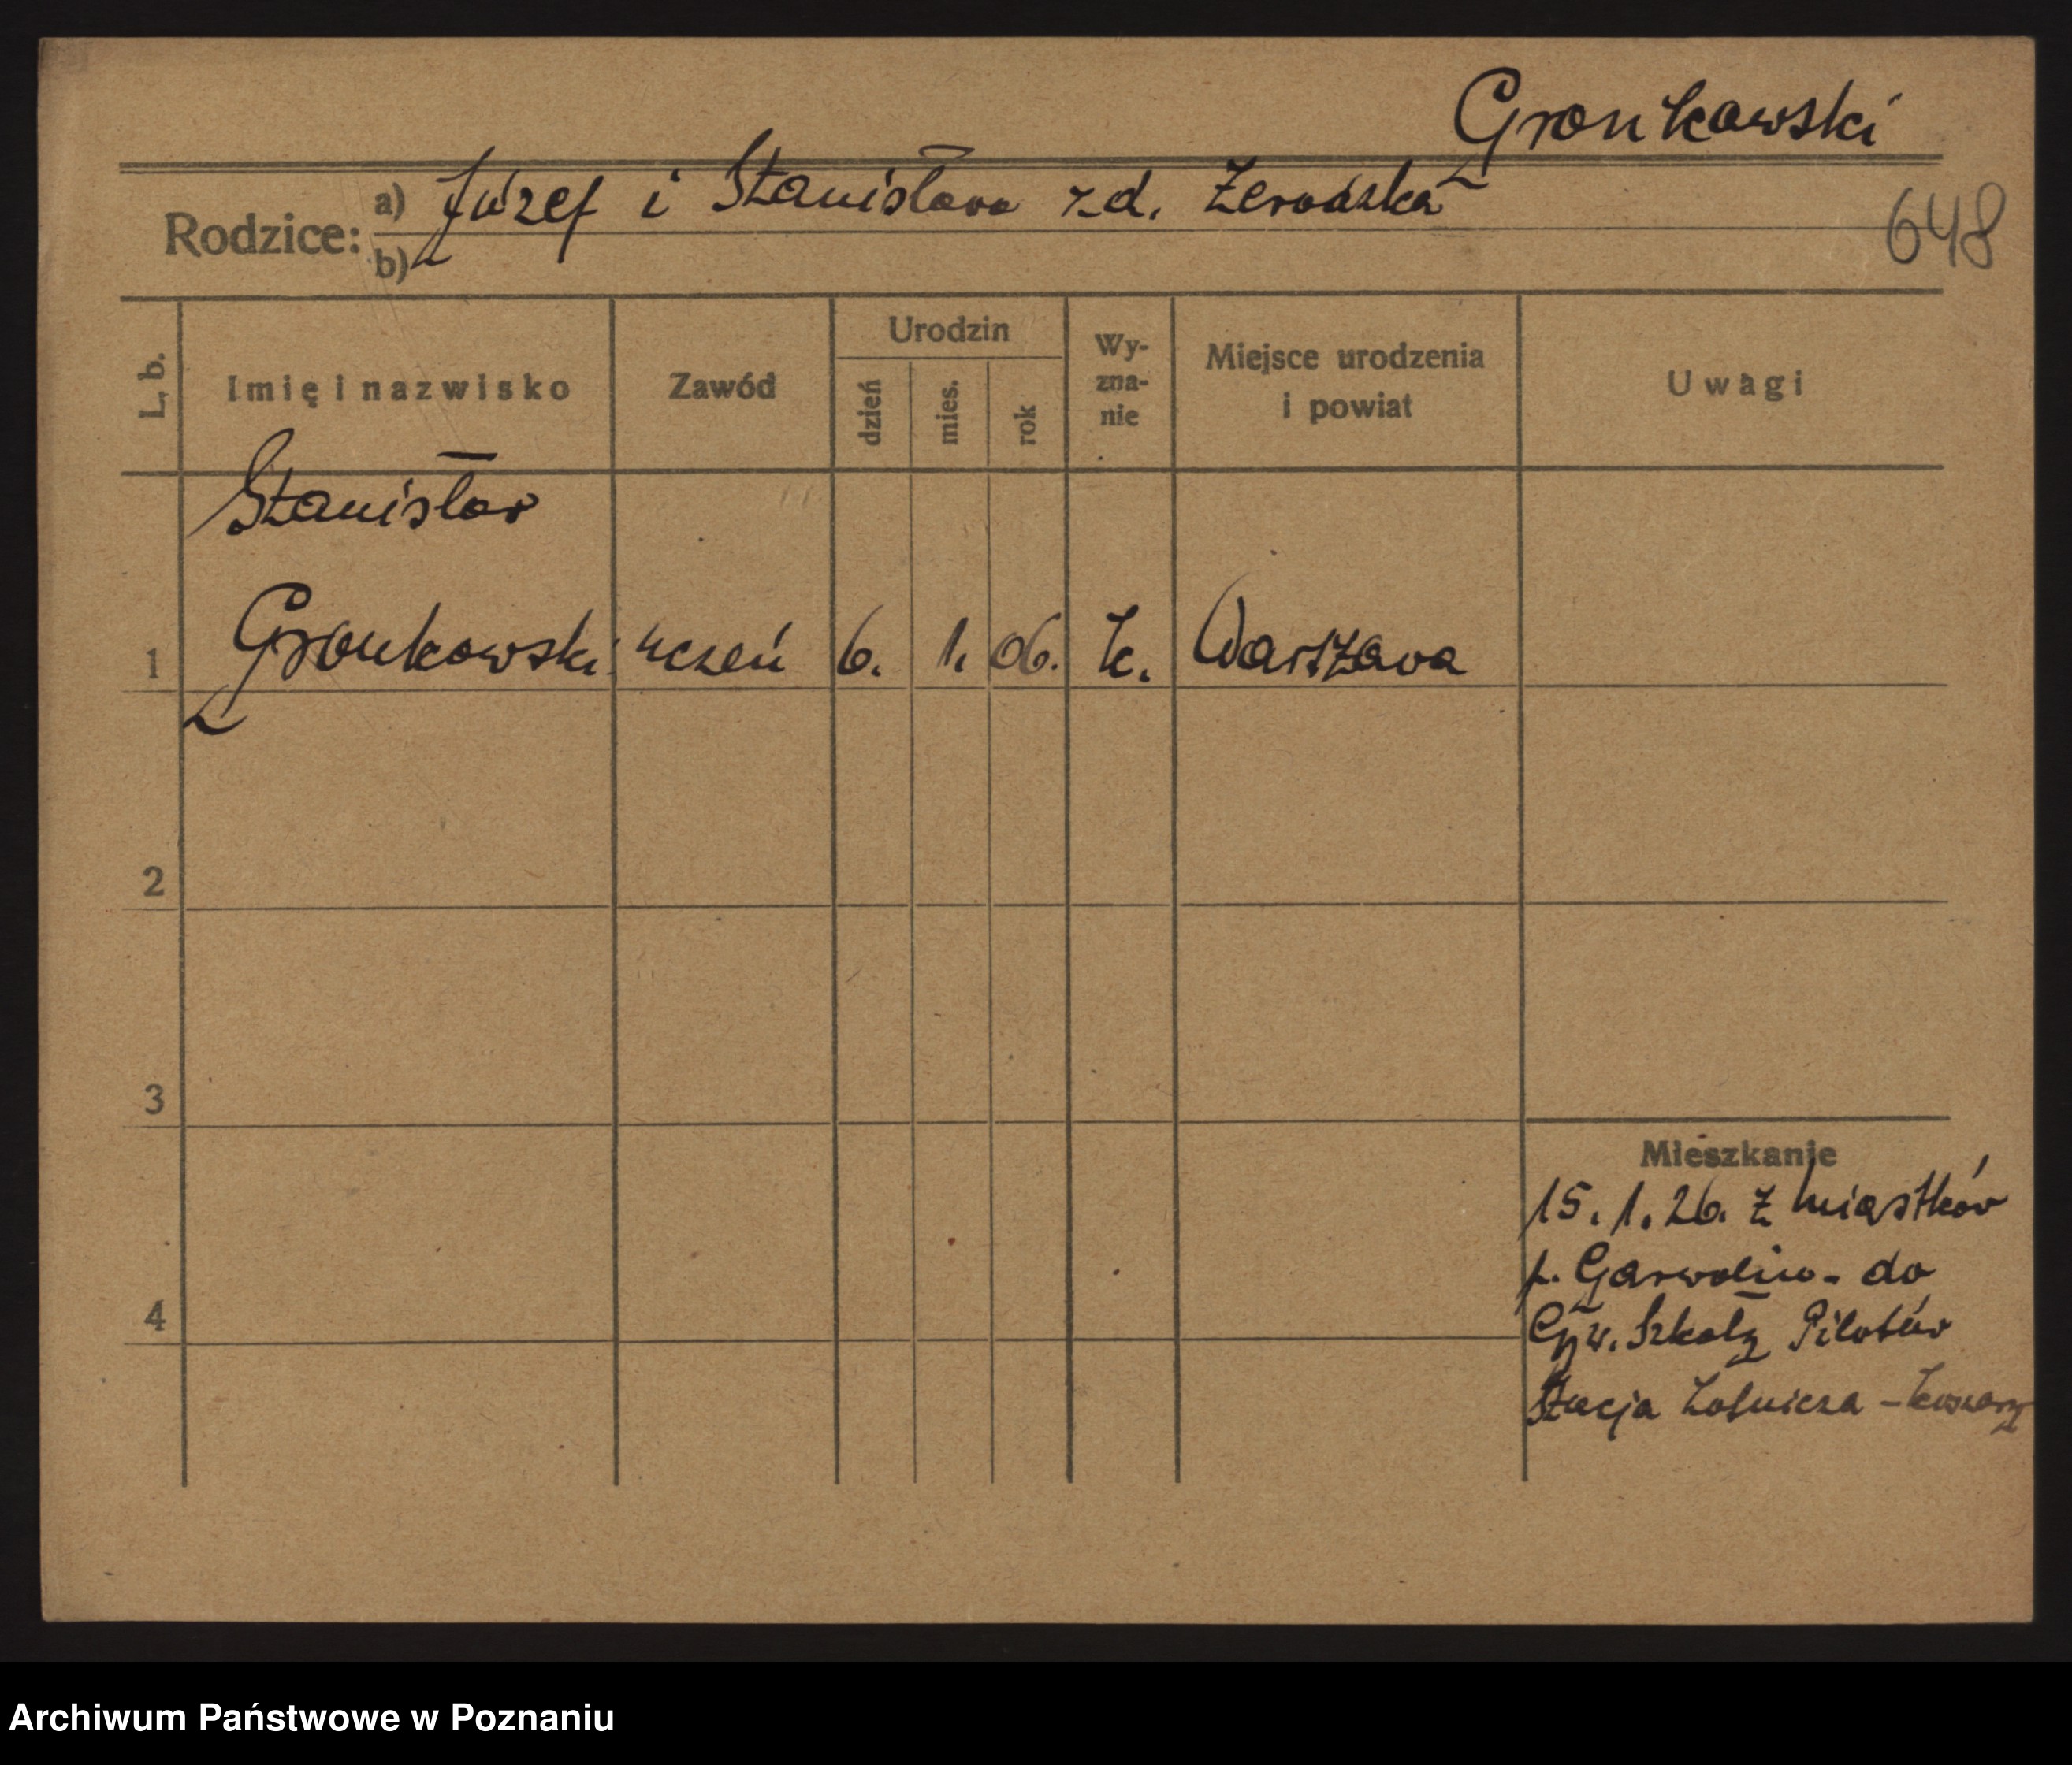 Gronkowski
Rodzice: a) Józef i Stanisława z d.
b)
648
L. b.
Imię i nazwisko
Zawód
Urodzin
dzień
mies.
rok
Wy-
zna-
nie
Miejsce urodzenia
i powiat
Uwagi
Stanisław
1 Gronkowski uczeń 6. 1. 06. k. Warszawa
2
3
4
Mieszkanie
15. 1. 26. z Miastków
p. Garwolin - do
Cyw. Szkoły Pilotów
Stacja Lotnicza - koszary
Archiwum Państwowe w Poznaniu